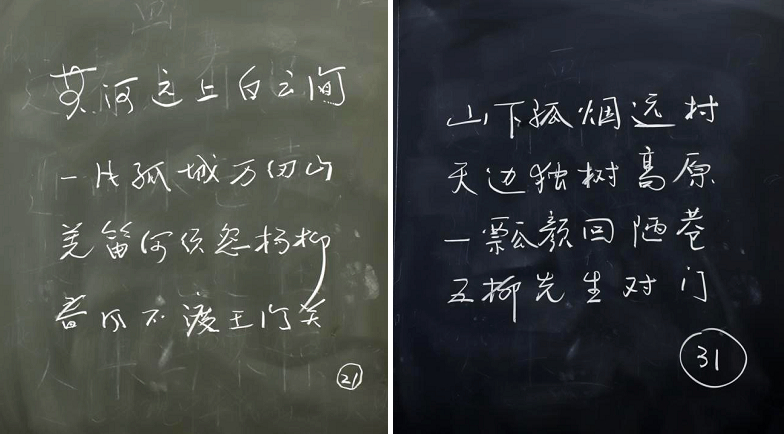 黄河远上白云间
一片孤城万仞山
羌笛何须怨杨柳
春风不渡玉门关
21
山下孤烟远村
天边独树高原
一瓢颜回陋巷
五柳先生对门
31